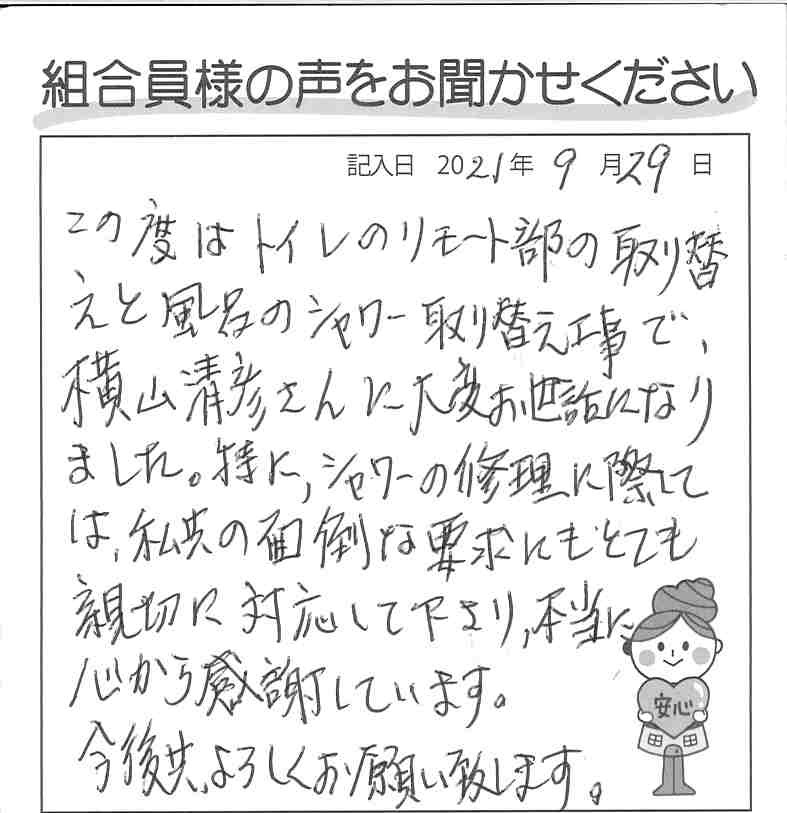 組合員様の声をお聞かせください
記入日 2021年 9月29日
この度はトイレのリモート部の取り替
えと風呂のシャワー取り替え工事で、
横山清彦さんに大変お世話になり
ました。特に、シャワーの修理に際して
は、私共の面倒な要求にもとても
親切に対応して下さり、本当に
心から感謝しています。
今後共、よろしくお願い致します。
安心